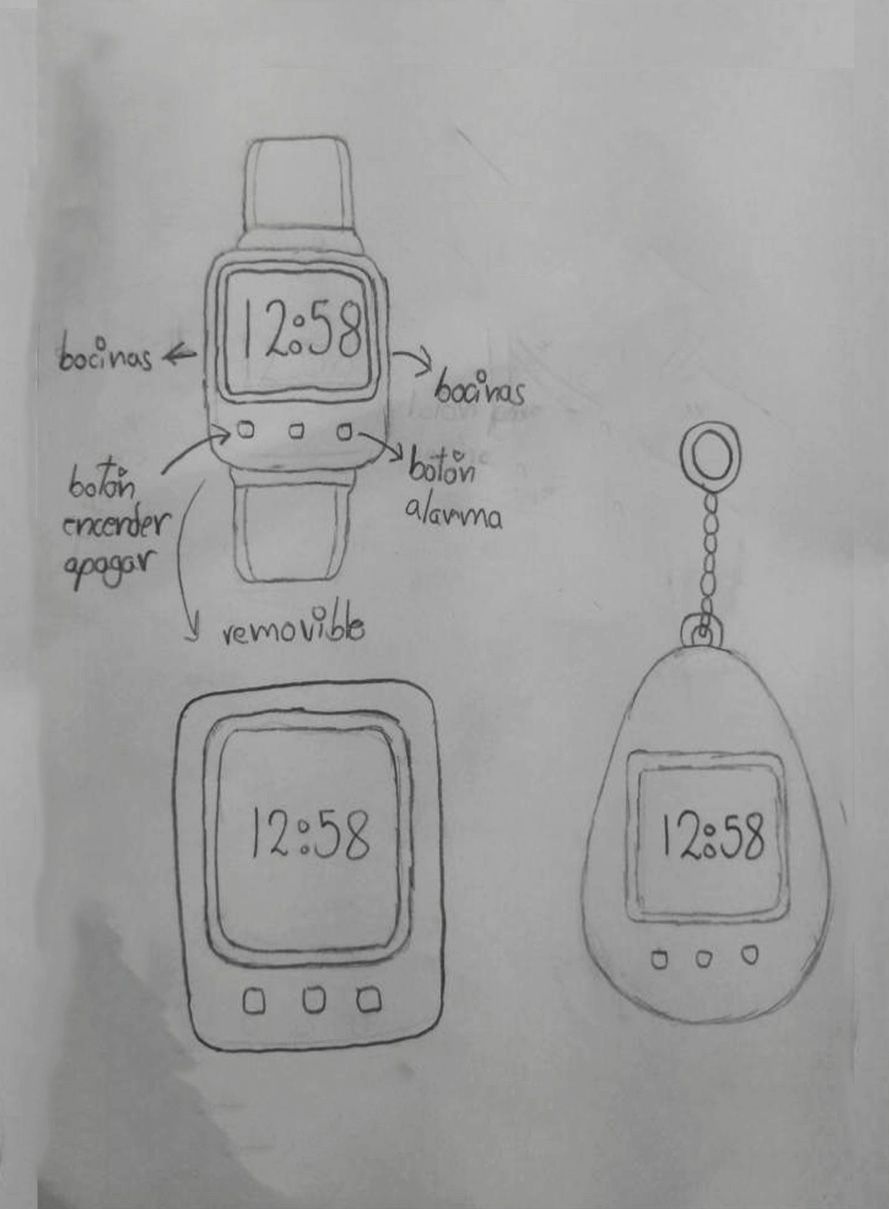 12:58
bocinas
bocinas
botón
encender
apagar
botón
alarma
removible
12:58
12:58